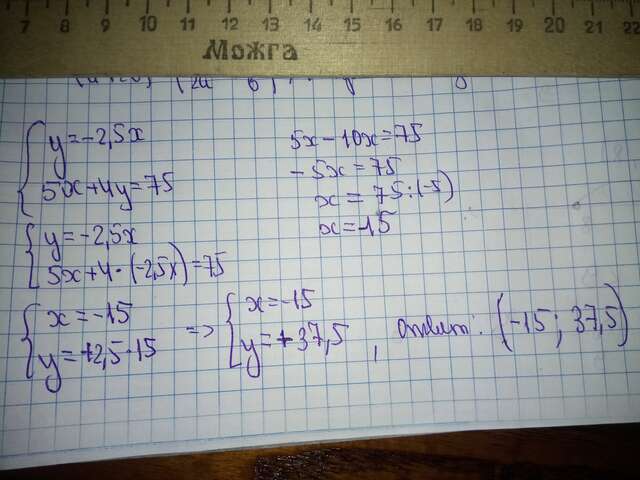 { y = -2,5x
{ 5x + 4y = 75
{ y = -2,5x
{ 5x + 4 · (-2,5x) = 75
{ x = -15
{ y = +2,5 · 15
=> { x = -15
{ y = +37,5
5x - 10x = 75
- 5x = 75
x = 75 : (-5)
x = 15
Ответ: (-15; 37,5)
Можга
7 8 9 10 11 12 13 14 15 16 17 18 19 20 21 22